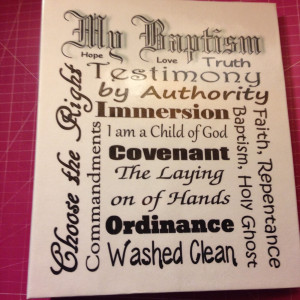 My Baptism
Hope Love Truth
Testimony
by Authority
Immersion
I am a Child of God
Covenant
The Laying
on of Hands
Ordinance
Washed Clean
Choose the Right
Commandments
Faith, Repentance
Baptism, Holy Ghost